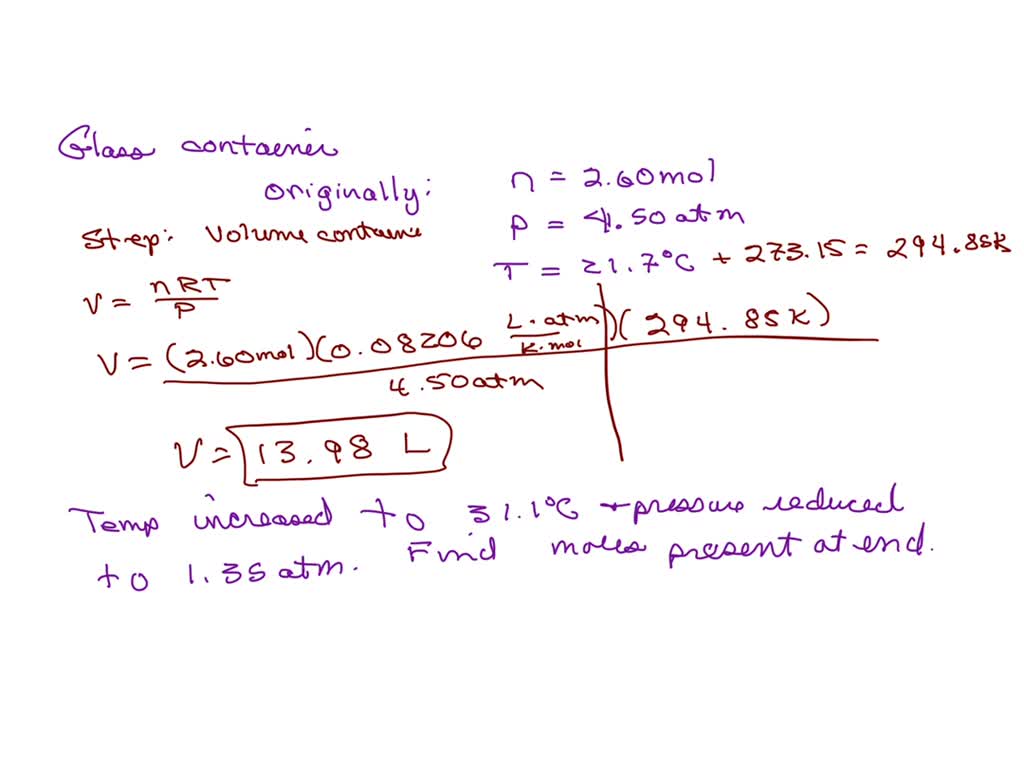 Glass container
originally:
n = 2.60 mol
P = 4.50 atm
T = 21.7°C + 273.15 = 294.85K
Step: Volume containe
V = nRT / P
V = (2.60mol)(0.08206 L·atm / K·mol)(294.85K) / 4.50atm
V = 13.98 L
Temp increased to 31.1°C + pressure reduced
to 1.35 atm. Find moles present at end.